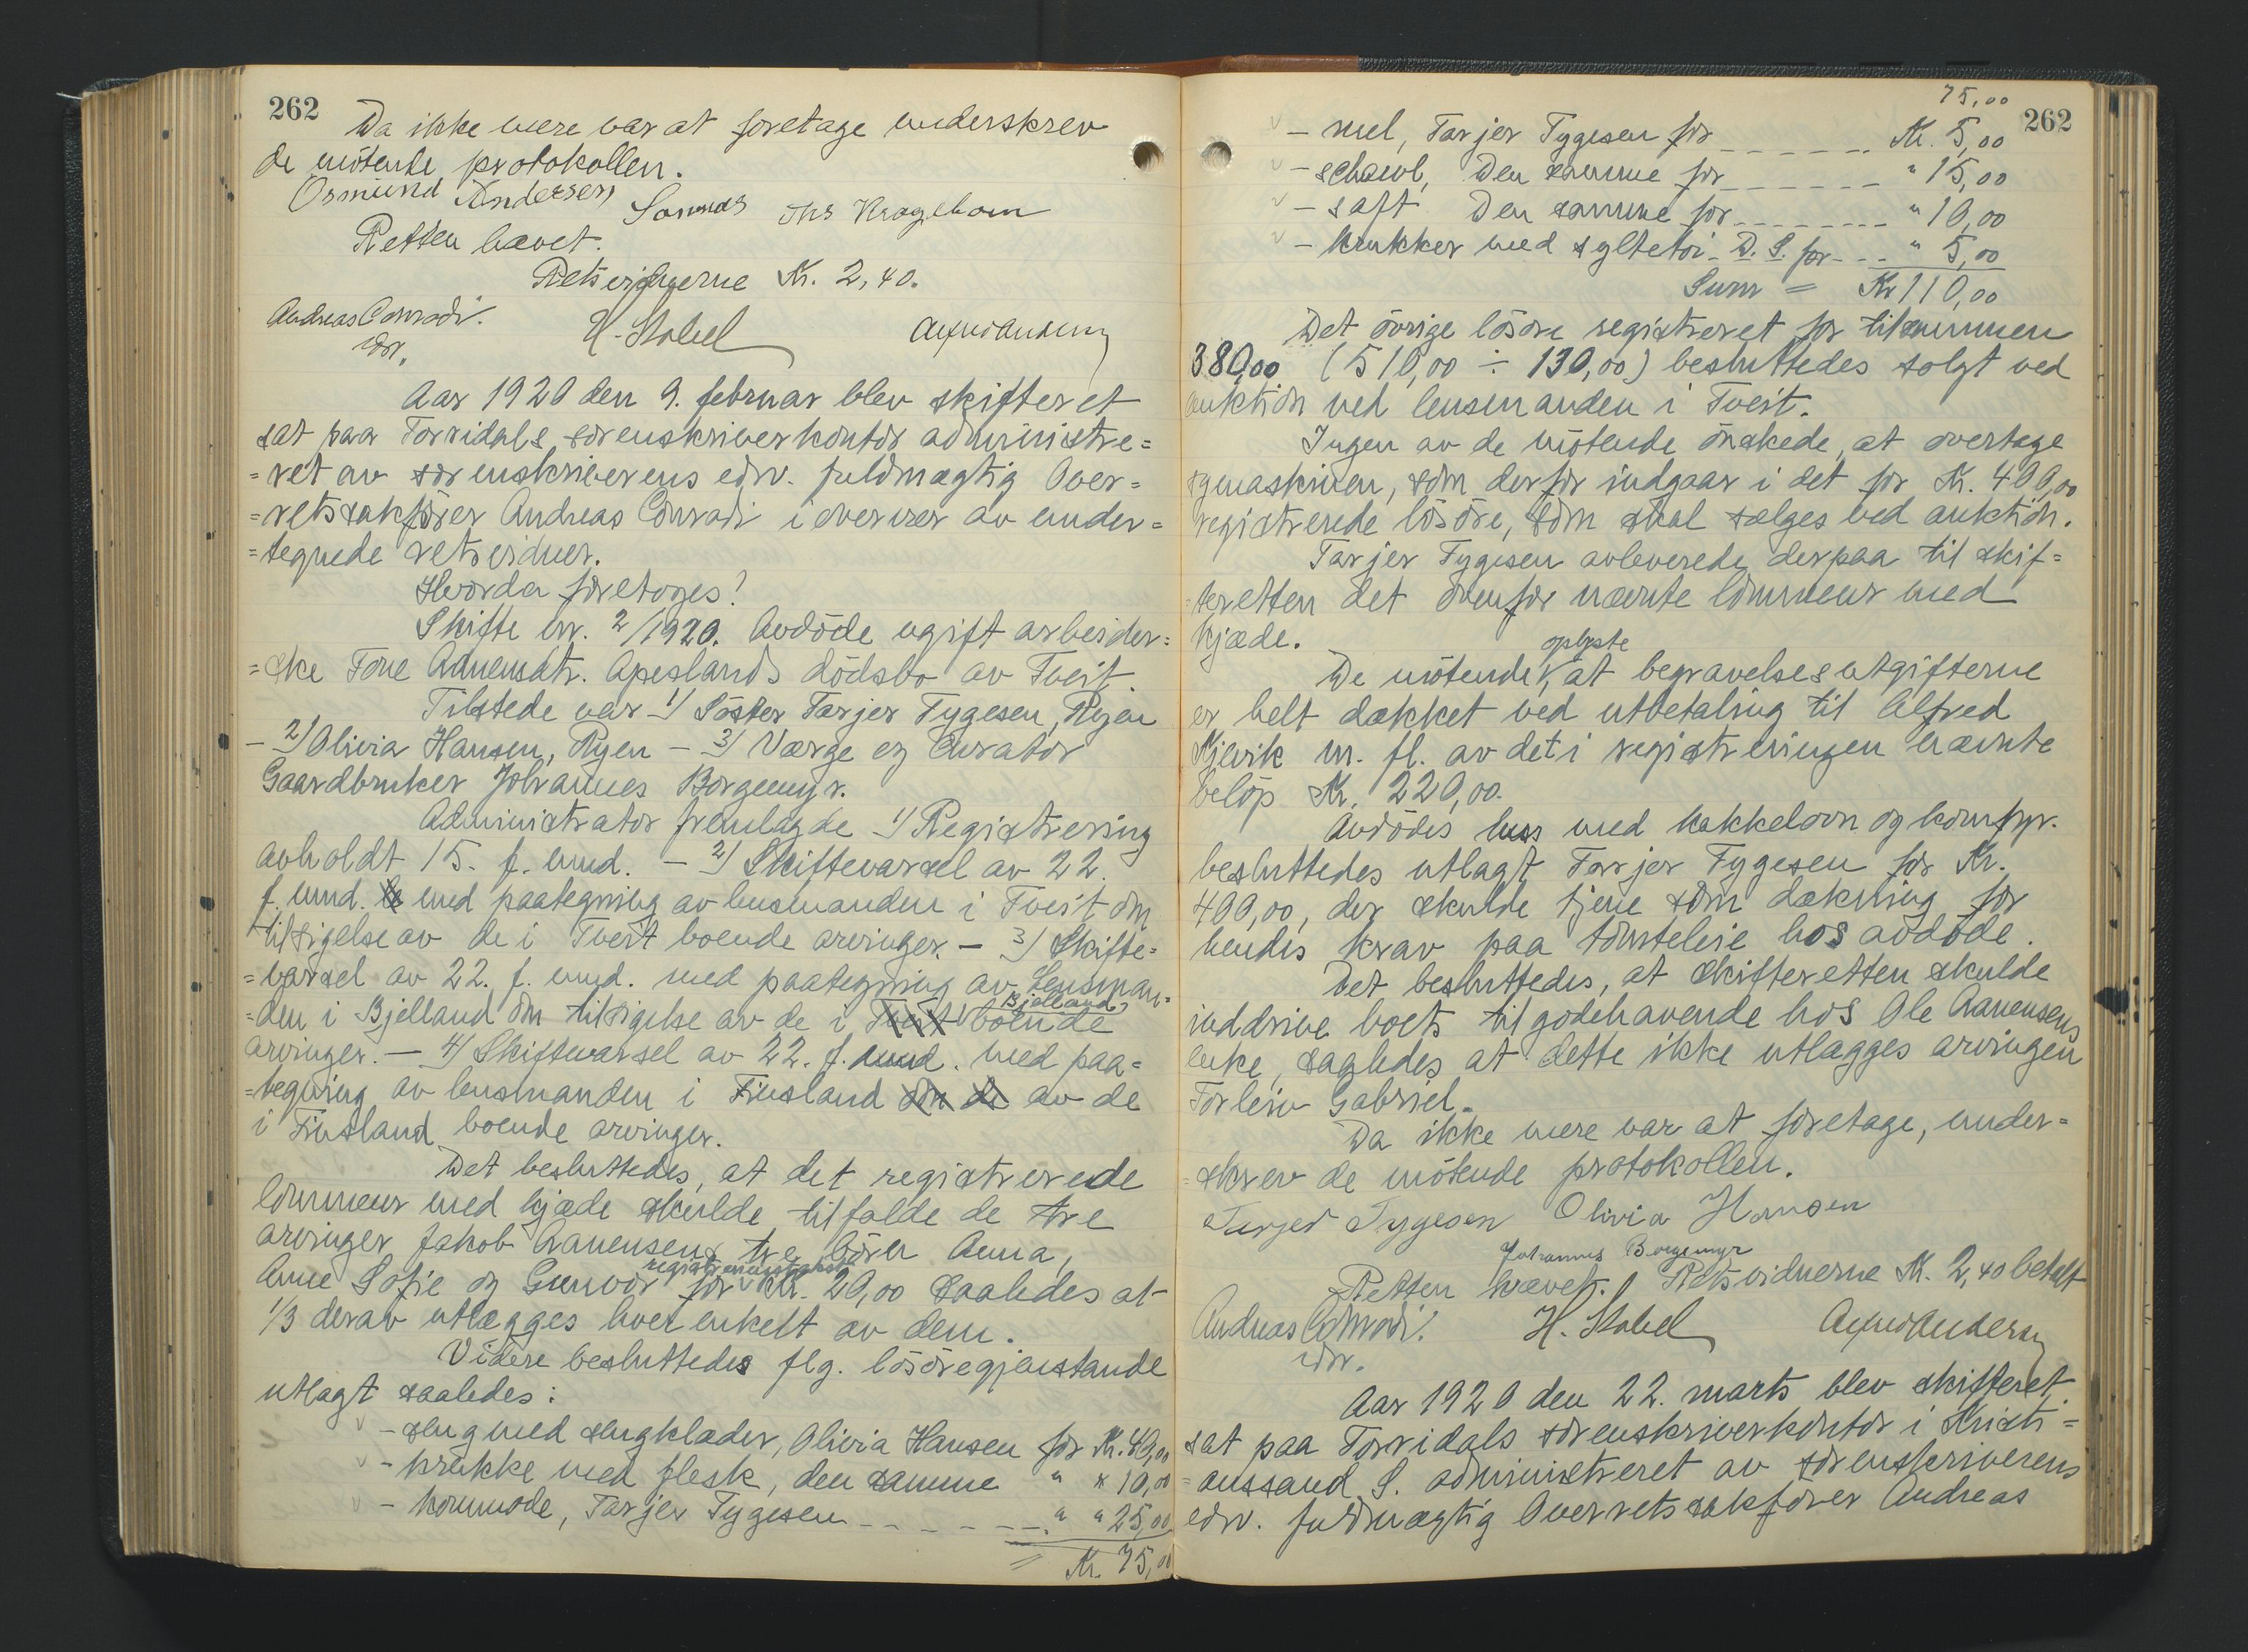 262
Da ikke mere var at foretage underskrev
de mötende protokollen.
Osmund Andersen Sonnas Ths Kragebom
Retten hævet.
Retsvidnerne Kr. 2,40.
Andreas Conradi. H. Stabel
edv.
Aar 1920 den 9. februar blev skifteret
sat paa Torridals sorenskriverkontor administre=
=ret av sorenskriverens edv. fuldmægtig Over=
=retssakfører Andreas Conradi i overvær av under=
=tegnede retsvidner.
Hvorda foretoges!
Skifte nr. 2/1920. Avdöde ugift arbeider=
=ske Tone Aanensdtr. Apeslands dödsbo av Tveit.
Tilstede var 1) Söster Tarjer Tygesen, Ryen
- 2) Olivia Hansen, Ryen - 3) Værge og Curator
Gaardbruker Johannes Borgemyr.
Administrator fremlagde 1) Registrering
avholdt 15. f. mnd. - 2) Skiftevarsel av 22.
f. mnd. med paategning av lensmanden i Tveit om
tilsigelse av de i Tveit boende arvinger. - 3) Skifte=
=varsel av 22. f. mnd. med paategning av Lensman=
=den i Bjelland om tilsigelse av de i Tveit Bjelland boende
arvinger. - 4) Skiftevarsel av 22. f. mnd. med paa=
=tegning av lensmanden i Finsland om de av de
i Finsland boende arvinger.
Det besluttedes, at det registrerede
lommeur med kjæde skulde tilfalde de tre
arvinger Jakob Aanensens tre börn Anna,
Anne Sofie og Gunvor for registreringstakst Kr. 20,00 saaledes at
1/3 derav utlægges hver enkelt av dem.
Videre besluttedes flg. lösöregjenstande
utlagt saaledes:
- seng med sengklæder, Olivia Hansen for Kr. 40,00
- krukke med flesk, den samme " " 10,00
- kommode, Tarjer Tygesen - - - - - - " " 25,00
= Kr. 75,00
75,00
262
- mel, Tarjer Tygesen for - - - - - - Kr. 5,00
- schawl, Den samme for - - - - - - " 15,00
- saft Den samme for - - - - - - " 10,00
- krukker med syltetöi - D. S. for - - - " 5,00
Sum = Kr 110,00
Det övrige lösöre registreret for tilsammen
380,00 (510,00 ÷ 130,00) besluttedes solgt ved
auktion ved lensmanden i Tveit.
Ingen av de mötende önskede, at overtage
symaskinen, som derfor indgaar i det for Kr. 400,00
registrerede lösöre, som skal sælges ved auktion.
Tarjer Tygesen avleverede derpaa til skif=
=teretten det ovenfor nævnte lommeur med
kjæde.
De mötende oplyste, at begravelsesutgifterne
er helt dækket ved utbetaling til Alfred
Kjevik m. fl. av det i registreringen nævnte
belöp Kr. 220,00.
Avdödes hus med kakkelovn og komfyr.
besluttedes utlagt Tarjer Tygesen for Kr.
400,00, der skulde tjene som dækning for
hendes krav paa tomteleie hos avdöde.
Det besluttedes, at skifteretten skulde
inddrive boets tilgodehavende hos Ole Aanensens
enke, saaledes at dette ikke utlægges arvingen
Torleiv Gabriel.
Da ikke mere var at foretage, under=
=skrev de mötende protokollen.
Tarjer Tygesen Olivia Hansen
Johannes Borgemyr
Retten hævet. Retsvidnerne Kr. 2,40 betalt
Andreas Conradi. H. Stabel
edv.
Aar 1920 den 22. marts blev skifteret
sat paa Torridals sorenskriverkontor i Kristi=
=anssand S. administreret av sorenskriverens
edv. fuldmægtig Overretssakfører Andreas